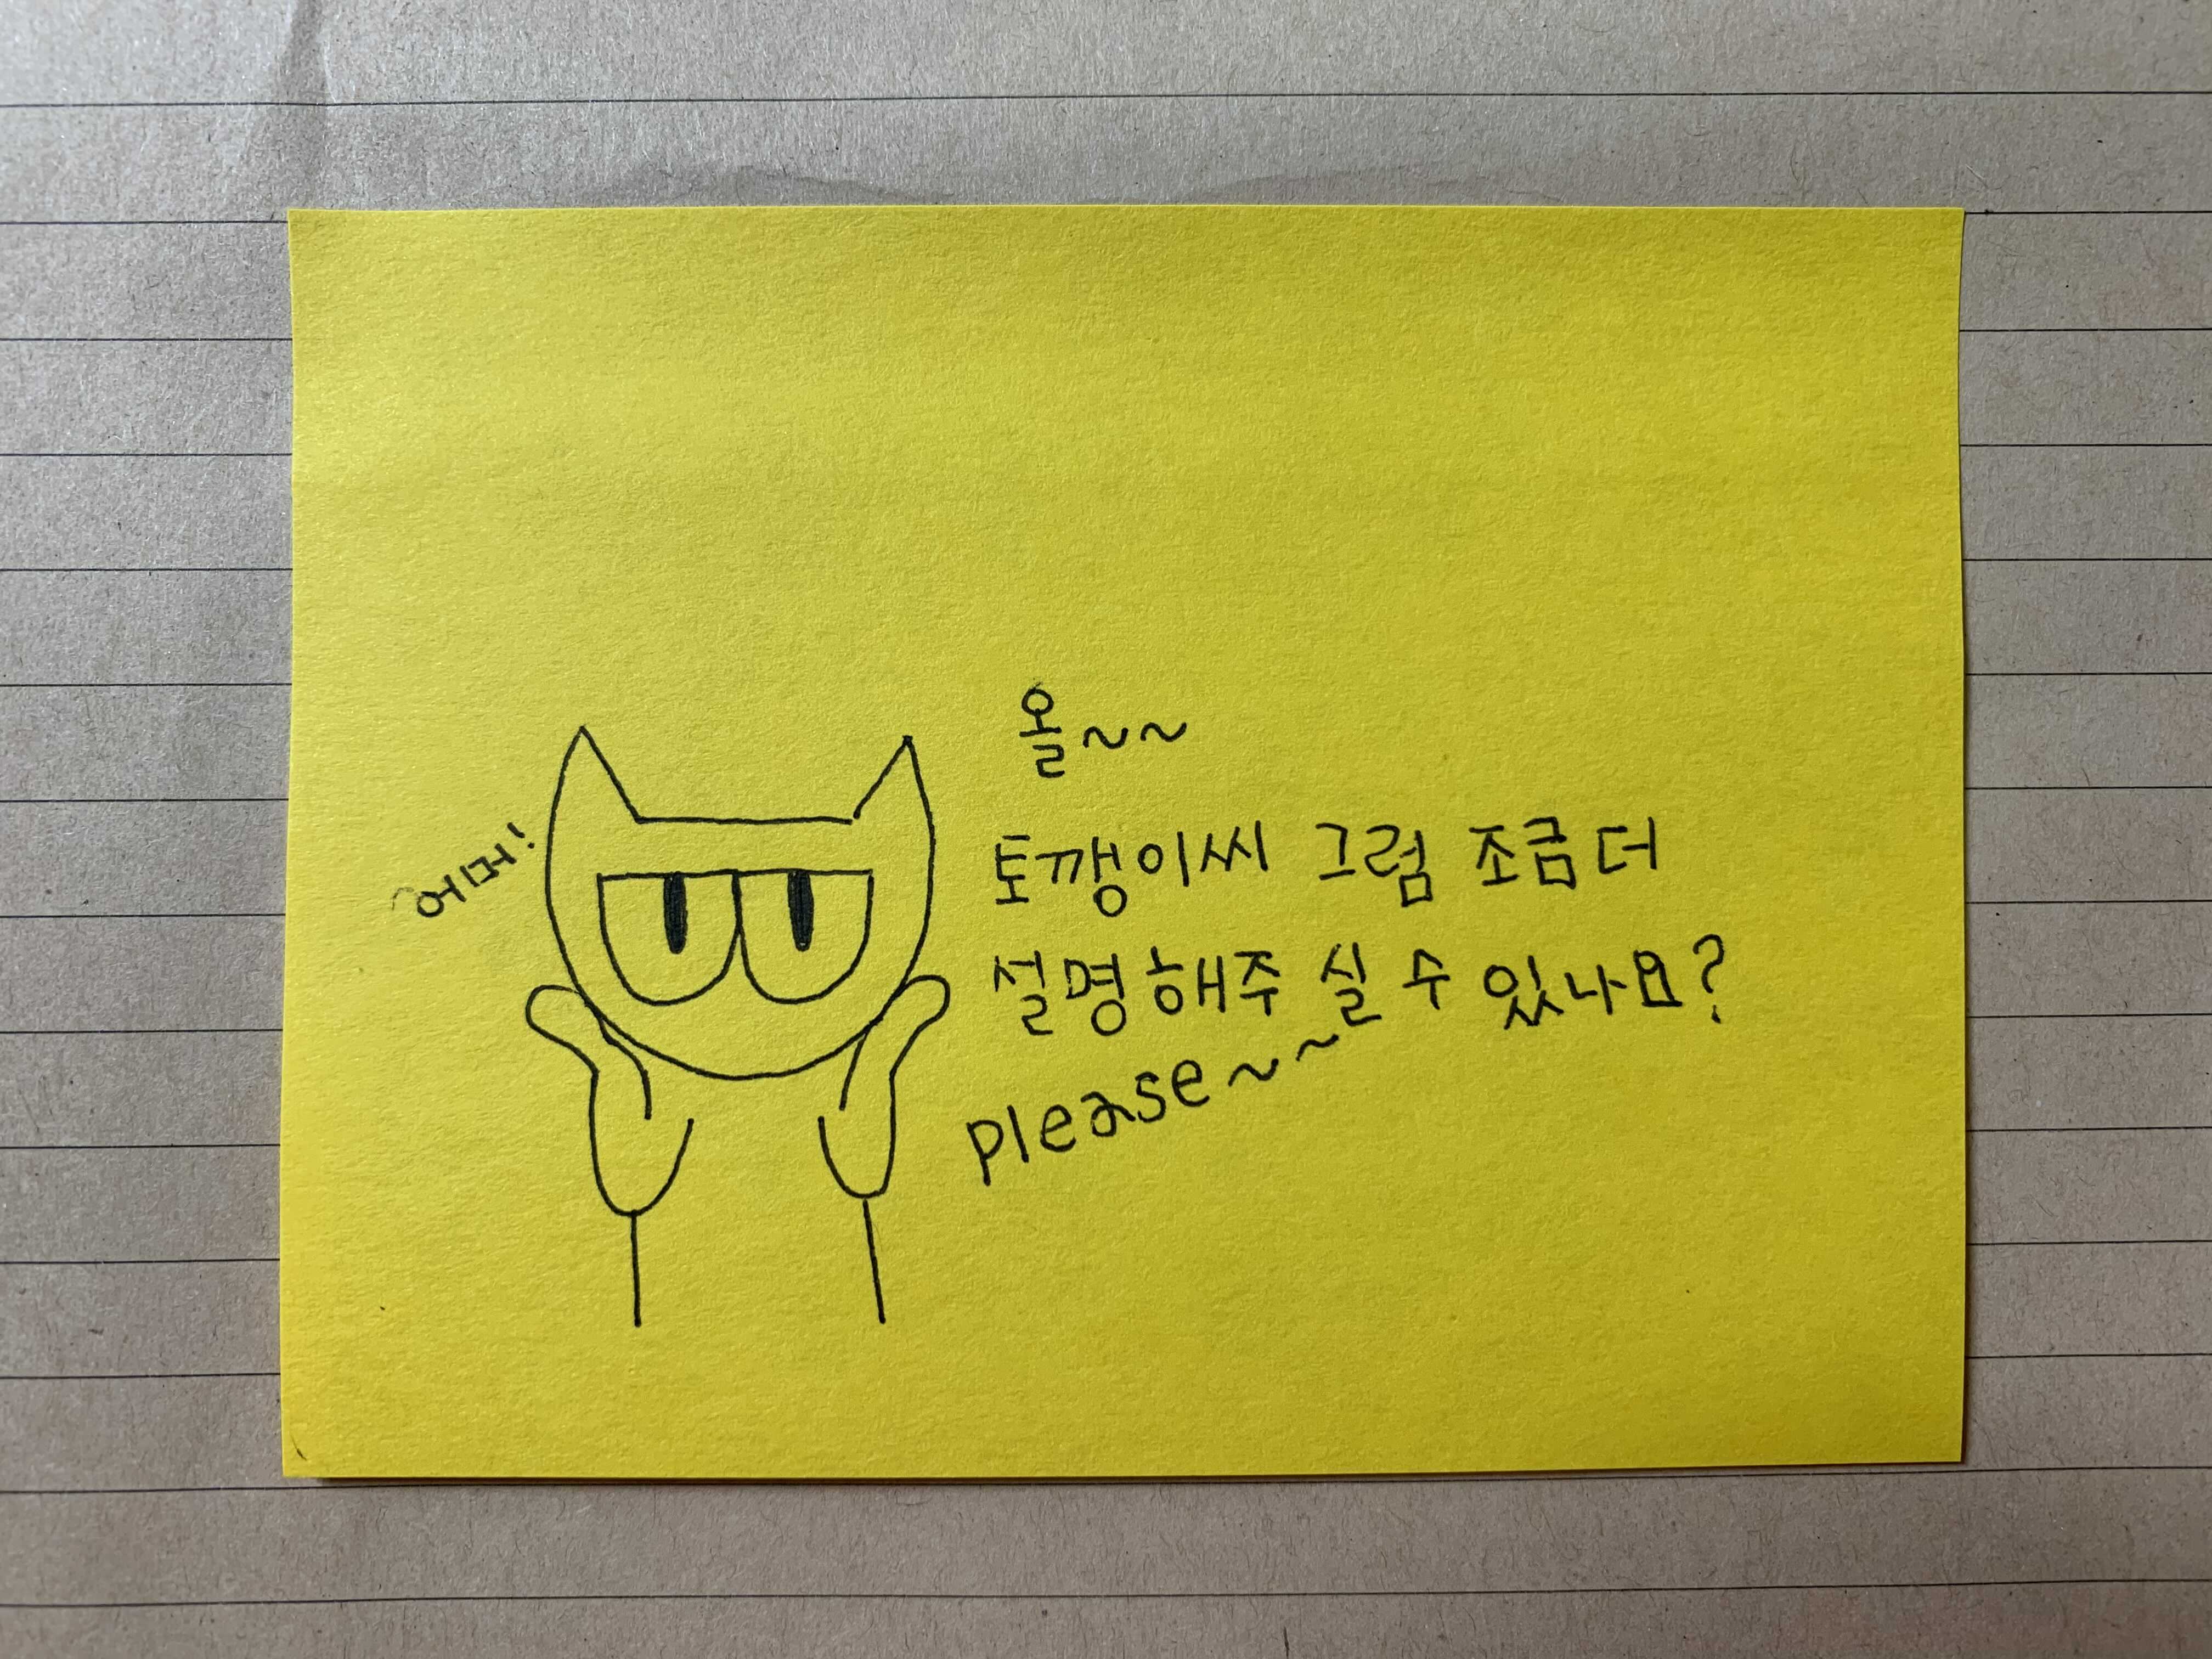 어머!
올~~
토깽이씨 그럼 조금 더
설명해주실 수 있나요?
please~~